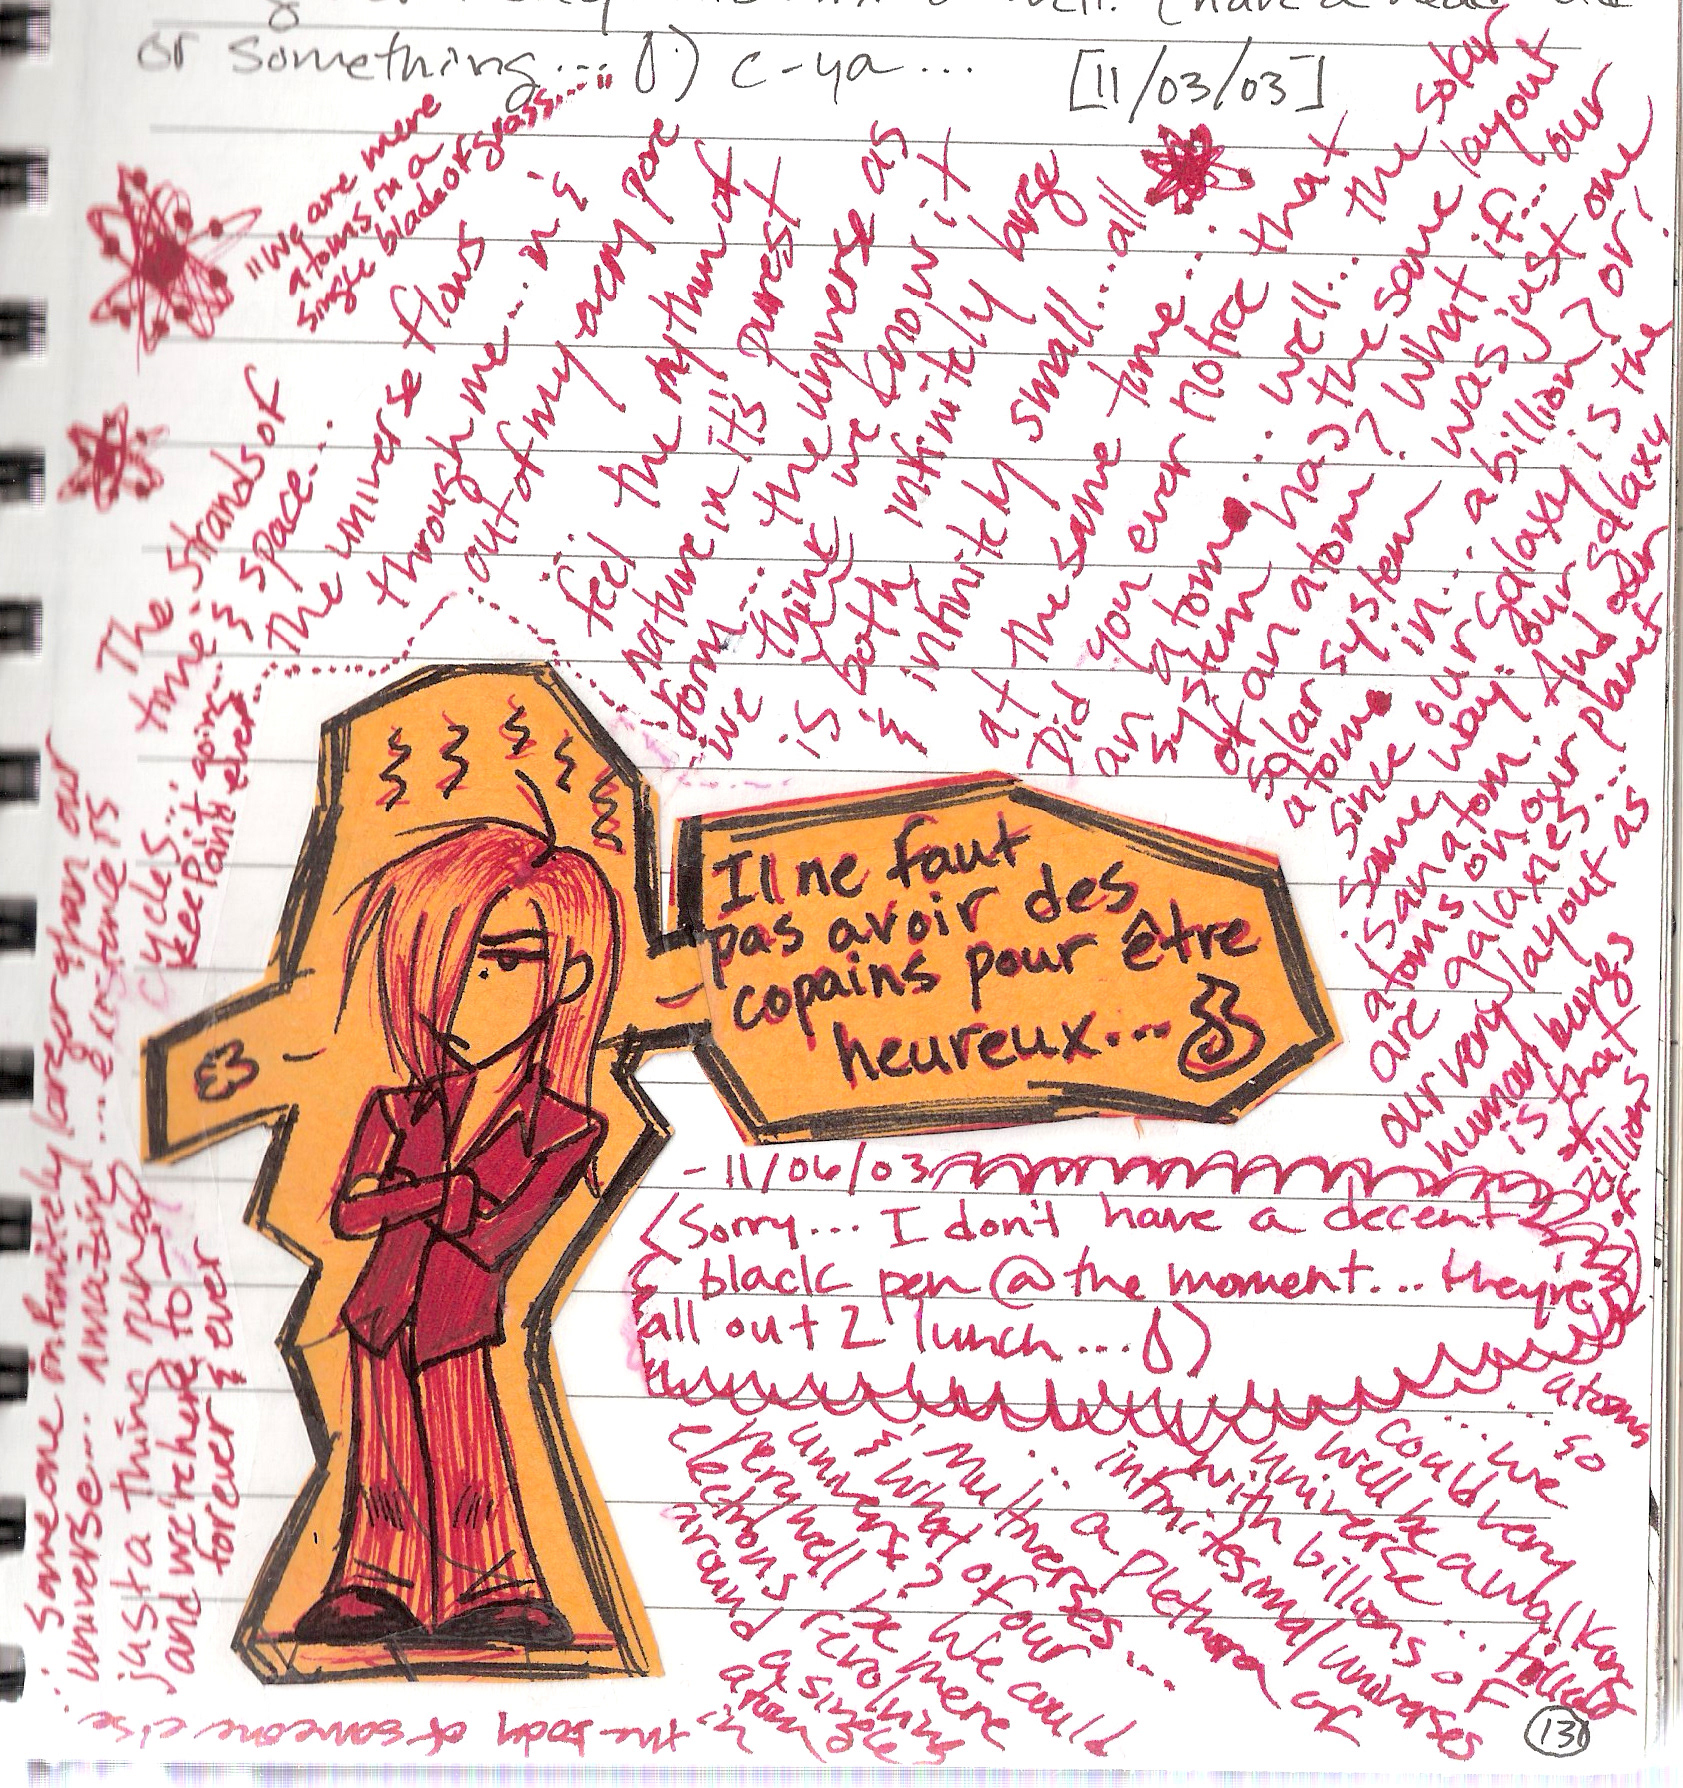 or something... 0) c-ya... [11/03/03]
"We are mere
atoms in a
single blade of grass...."
The strands of
time & space...
The universe flows
through me... in &
out of my very pore
feel the rhythm of
nature in its purest
form...
we think the universe as
we know it
is both infinitely large
& infinitely small... all
at the same time...
Did you ever notice that
an atom... well... the solar
system has the same layout
of an atom? What if... our
solar system was just one
atom in... a billion? or!
since our galaxy is the
same way. our galaxy
is an atom. And our
atoms on our planet
are galaxies...
our very layout as
human beings
is that
of zillions
of
atoms
... so
... we
could very
well be a walking
universe...
with billions of
infinitesimal universes
... a plethora of
multiverses...
& what of our
universe? We could
very well be mere
electrons revolving
around a single
atom
in the body of someone else.
...someone infinitely larger than our
universe.... amazing... existence is
just a thing run by
cycles...
and we're here to
keep it going...
forever & ever
& ever...
Il ne faut
pas avoir des
copains pour être
heureux...
-11/06/03
(Sorry... I don't have a decent
black pen @ the moment... they're
all out 2 lunch... 0)
131